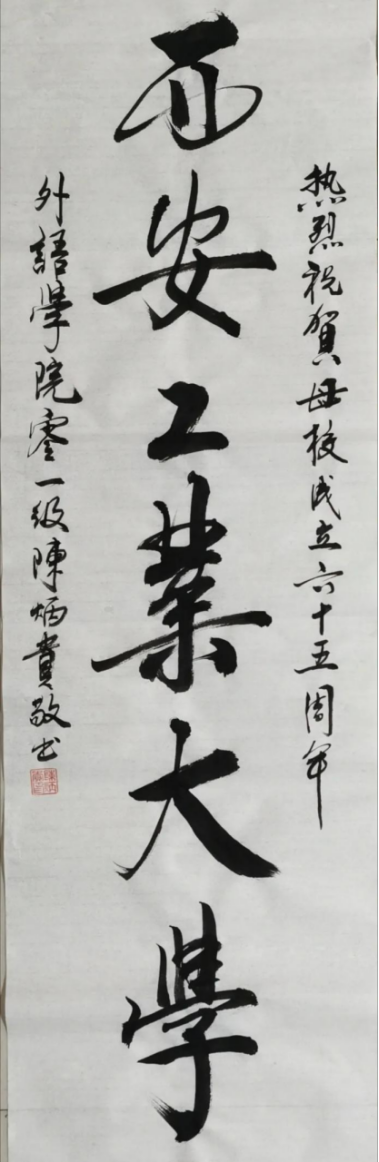 热烈祝贺母校成立六十五周年
西安工業大學
外語學院零一级陳炳貴敬书